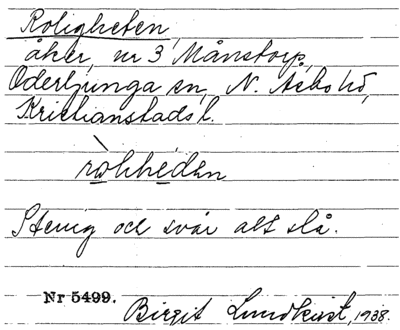 Roligheten,
åker, nr 3 Månstorp,
Oderljunga sn, N. Åsbo hd,
Kristianstads l.
Stenig och svår att slå.
Nr 5499.
Birgit Lundkvist, 1938.